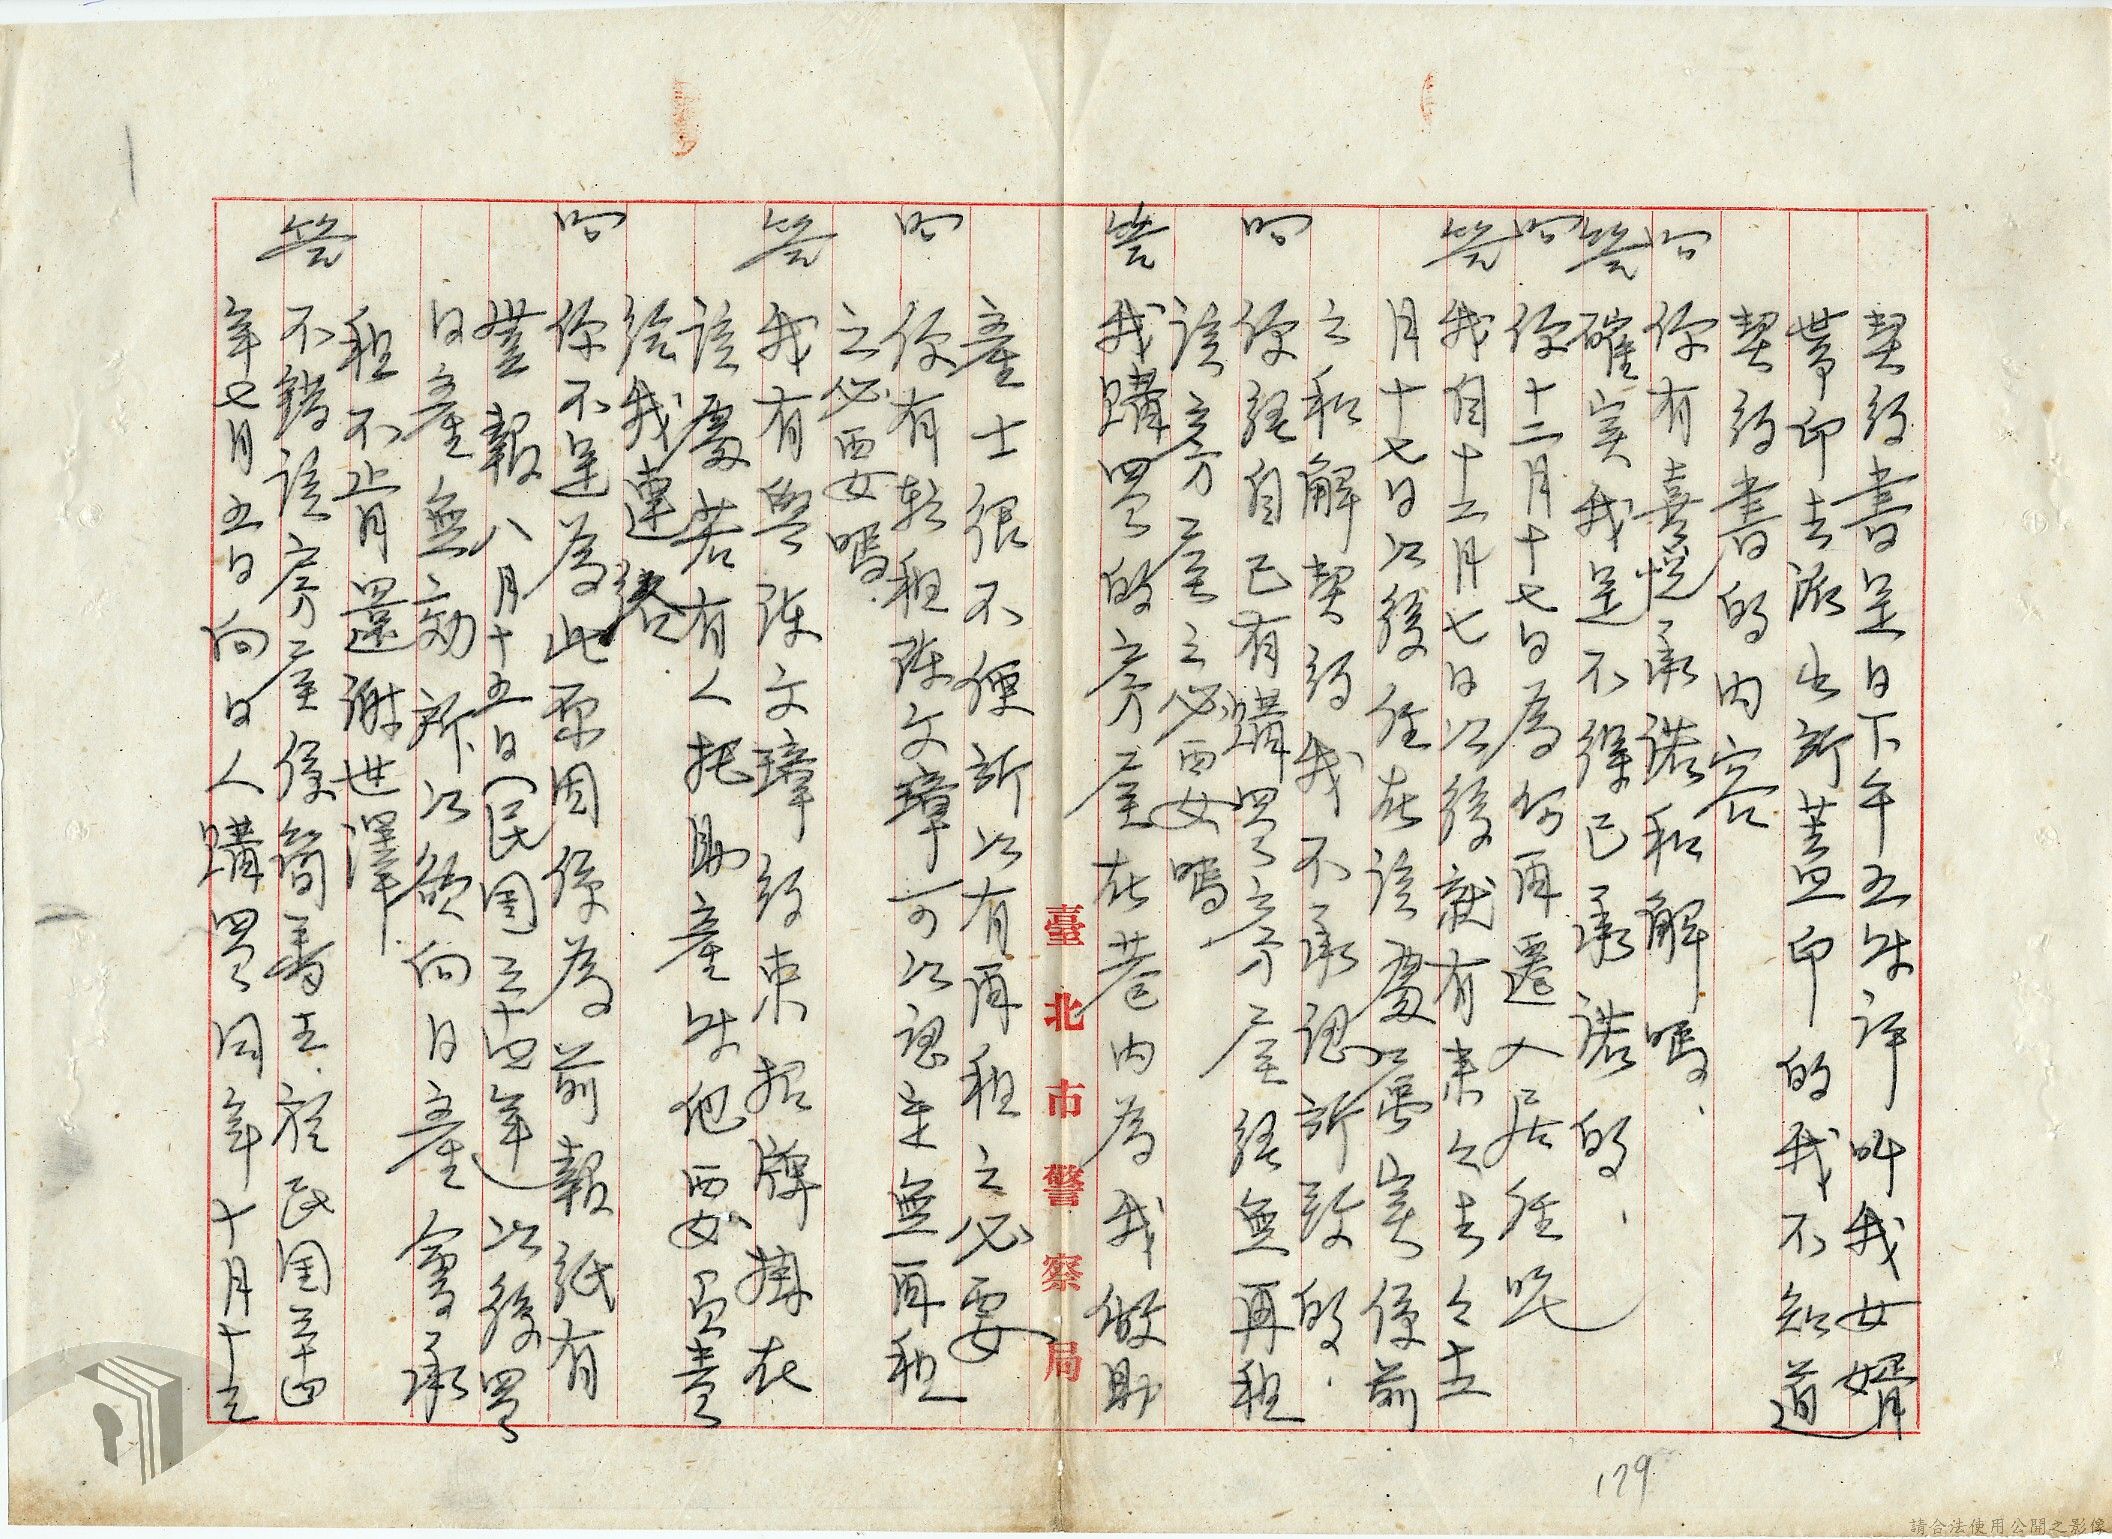 契約書是日下午五時許叫我女婿
帶印去派出所蓋印的我不知道
契約書的內容
問 你有喜悅承諾和解嗎、
答 確實我是不得已承諾的、
問 你十二月十七日為何再遷入居住呢
答 我自十二月七日以後就有來來去去至十二
月十七日以後住在該處實係前
之和解契約我不承認所致的、
問 你經自己有購買房屋經無再租
該房屋之必要嗎
答 我購買的房屋在巷內為我做助
產士很不便所以有再租之必要
問 你有轉租陳文璋可以認定無再租
之必要嗎、
答 我有與陳文璋約束招牌掛在
該處若有人托助產時他要負責
給我連絡
問 你不是為此原因係為前報紙有
登報八月十五日(民國三十四年)以後買
日產無效所以欲向日產會承
租不肯還謝世澤、
答 不錯該房屋係簡壽王、於民國三十四
年七月五日向日人購買同年十月十三
臺北市警察局
179
請合法使用公開之影像